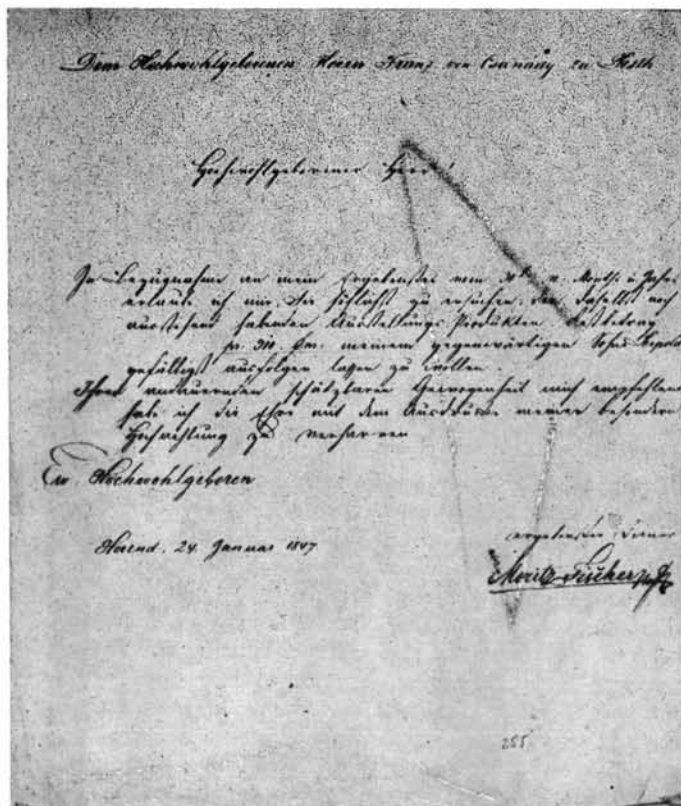 Dem Hochwohlgeborenen Herrn Franz von Csanády zu Pesth
Hochwohlgeborener Herr!
In Bezugnahme an mein Ergebenstes vom Months u Jahres
erlaube ich mir, Sie höflichst zu ersuchen, den daselbst noch
ausstehend habenden Ausstellungs-Produkten Restbetrag
meinem gegenwärtigen Sohne Leopold
gefälligst ausfolgen lassen zu wollen.
Ihrer andauernden schätzbaren Gewogenheit mich empfehlend
habe ich die Ehre mit dem Ausdrucke meiner besondern
Hochachtung zu verharren
Ew. Hochwohlgeboren
Herend, 24. Januar 1847
ergebenster Diener
Moritz Fischer
255